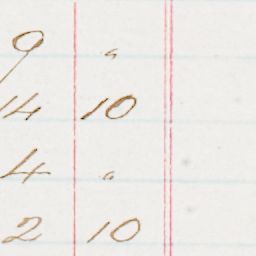 9 "
14 10
4 "
2 10